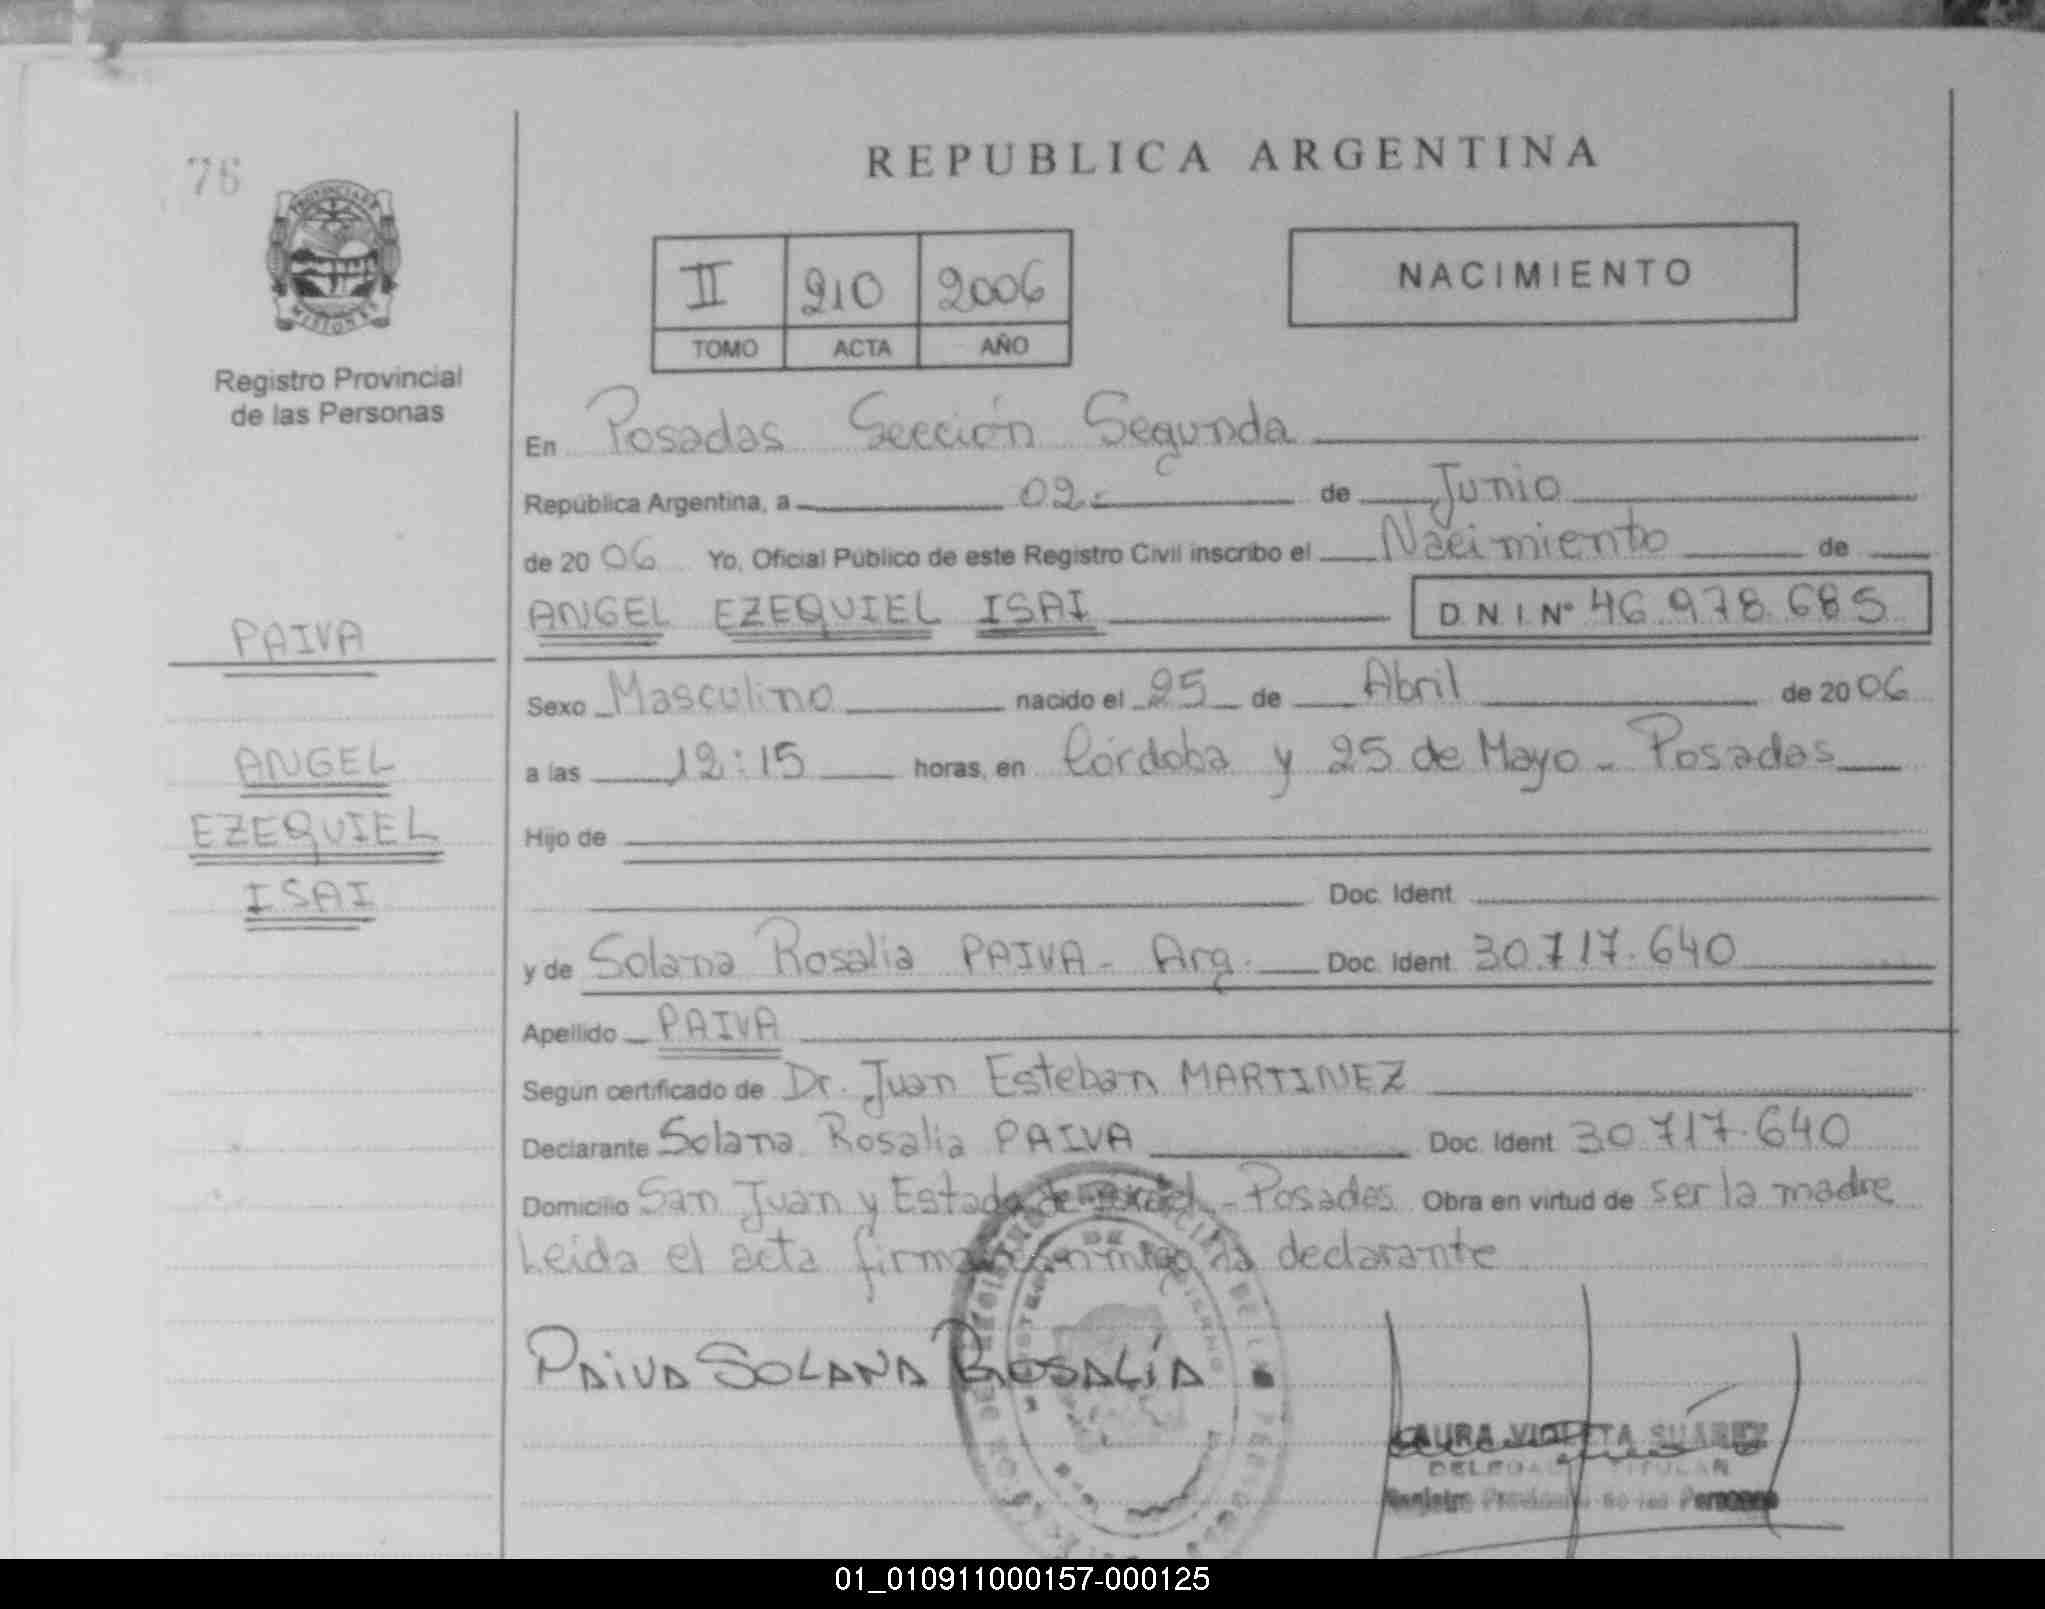 76
PROVINCIA DE
MISIONES
Registro Provincial
de las Personas
PAIVA
ANGEL
EZEQUIEL
ISAI
REPUBLICA ARGENTINA
II 210 2006
TOMO ACTA AÑO
NACIMIENTO
En Posadas Sección Segunda
República Argentina, a 02- de Junio
de 2006 Yo, Oficial Público de este Registro Civil inscribo el Nacimiento de
ANGEL EZEQUIEL ISAI D N I Nº 46.978.685
Sexo Masculino nacido el 25 de Abril de 2006
a las 12:15 horas, en Córdoba y 25 de Mayo - Posadas
Hijo de
Doc. Ident.
y de Solana Rosalia PAIVA - Arg. Doc. Ident 30.717.640
Apellido PAIVA
Según certificado de Dr. Juan Esteban MARTINEZ
Declarante Solana Rosalia PAIVA Doc. Ident 30.717.640
Domicilio San Juan y Estado de Israel - Posadas Obra en virtud de ser la madre
Leida el acta firma conmigo la declarante
PAIVA SOLANA ROSALÍA
LAURA VIOLETA SUÁREZ
DELEGADA TITULAR
Registro Provincial de las Personas
01_010911000157-000125